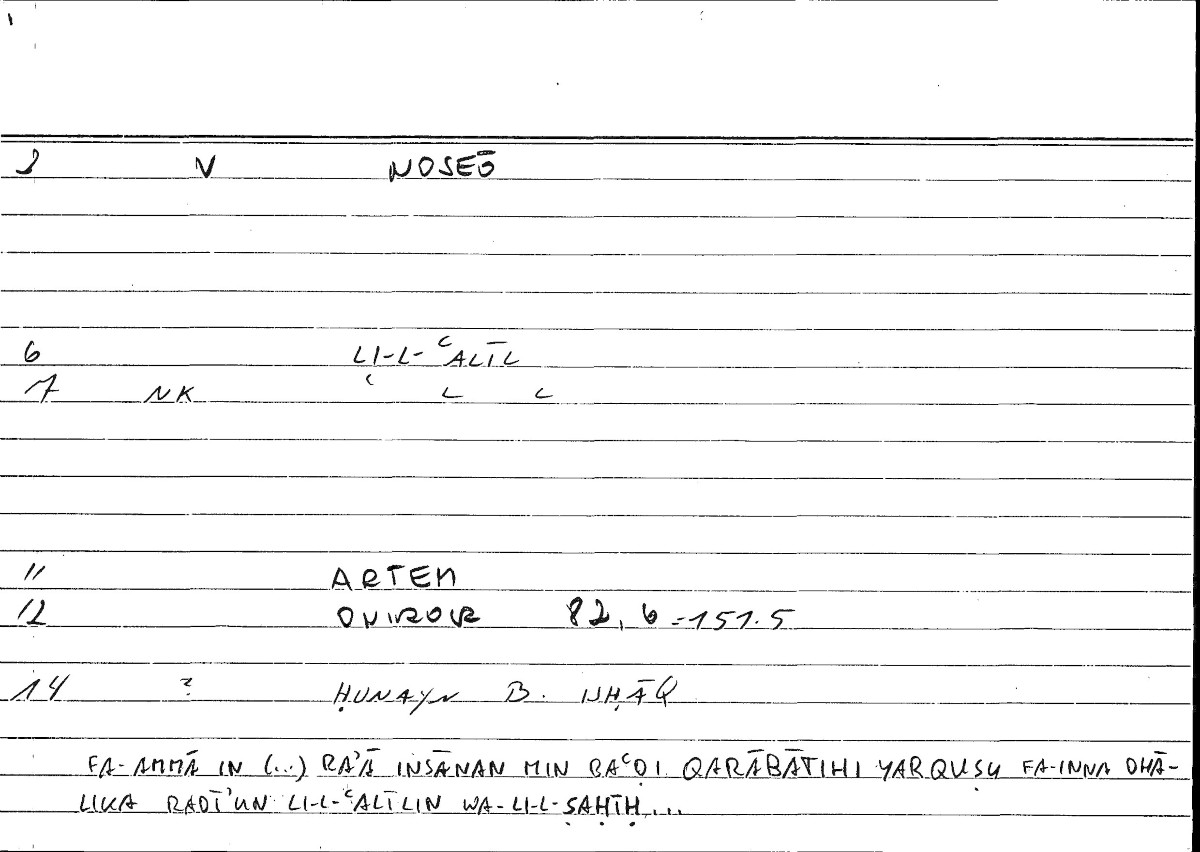 3 V NOSEŌ
6 LI-L-ʿALĪL
7 NK
11 ARTEM
12 ONIROKR 82, 6 = 151.5
14 ? ḤUNAYN B. ISḤĀQ
FA-AMMĀ IN (...) RAʾĀ INSĀNAN MIN BAʿDI QARĀBĀTIHI YARQUṢU FA-INNA DHĀ-
LIKA RADĪʾUN LI-L-ʿALĪLIN WA-LI-L-ṢAḤĪḤ...